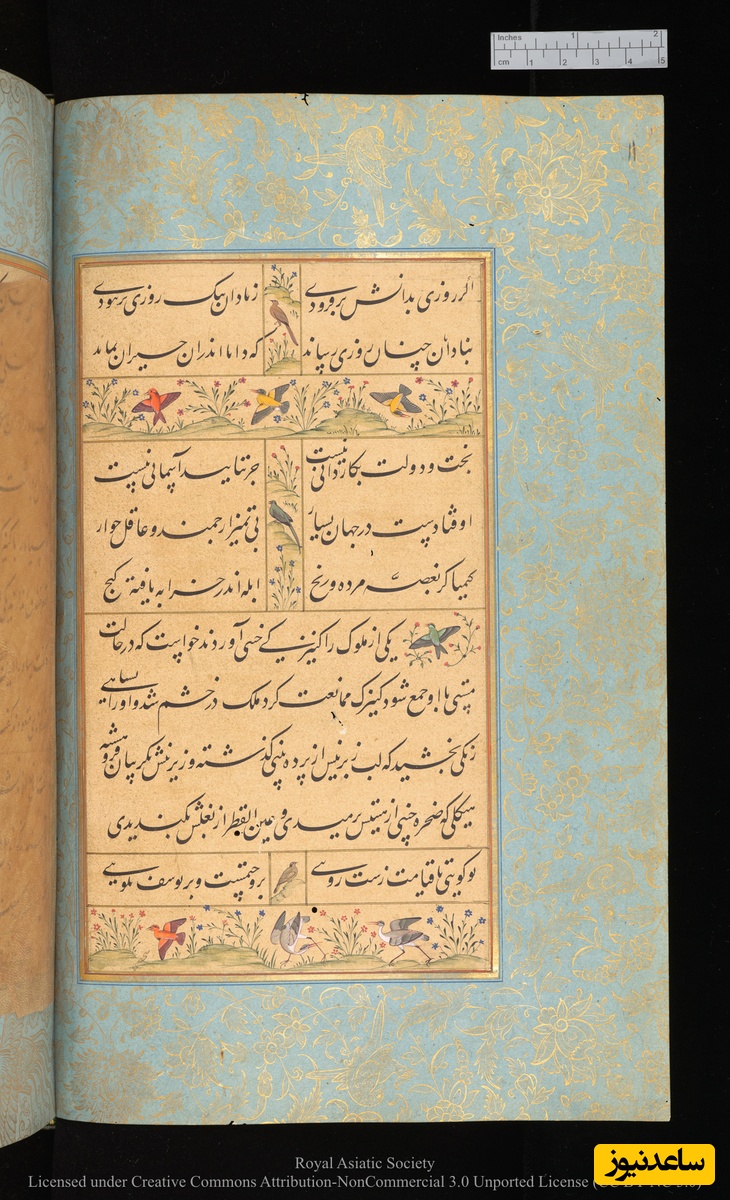 Inches 1 2
cm 1 2 3 4 5
اگر روزی بدانش بر فزودی زنادان تنک روزی تر نبودی
بنادان چنان روزی رساند که دانا اندران حیران بماند
بخت و دولت بکاردانی نیست جز بتایید آسمانی نیست
اوفتادست در جهان بسیار بی تمیز ارجمند و عاقل خوار
کیمیا کر بغصه مرده و رنج ابله اندر خرابه یافته گنج
یکی از ملوک را کنیزکی چینی آوردند خواست که در حالت
مستی با او جمع شود کنیزک ممانعت کرد ملک در خشم شد و او را بسیاهی
زنکی بخشید که لب زبرینش از پرده بینی گذشته و زیرینش بگریبان فروهشته
هیکلی که صخره جنی از هیبتش برمیدی و عین القطر از بغلش بگندیدی
تو کویی تا قیامت زشت رویی برو ختمست و بر یوسف نکویی
Royal Asiatic Society
Licensed under Creative Commons Attribution-NonCommercial 3.0 Unported License
ساعدنیوز